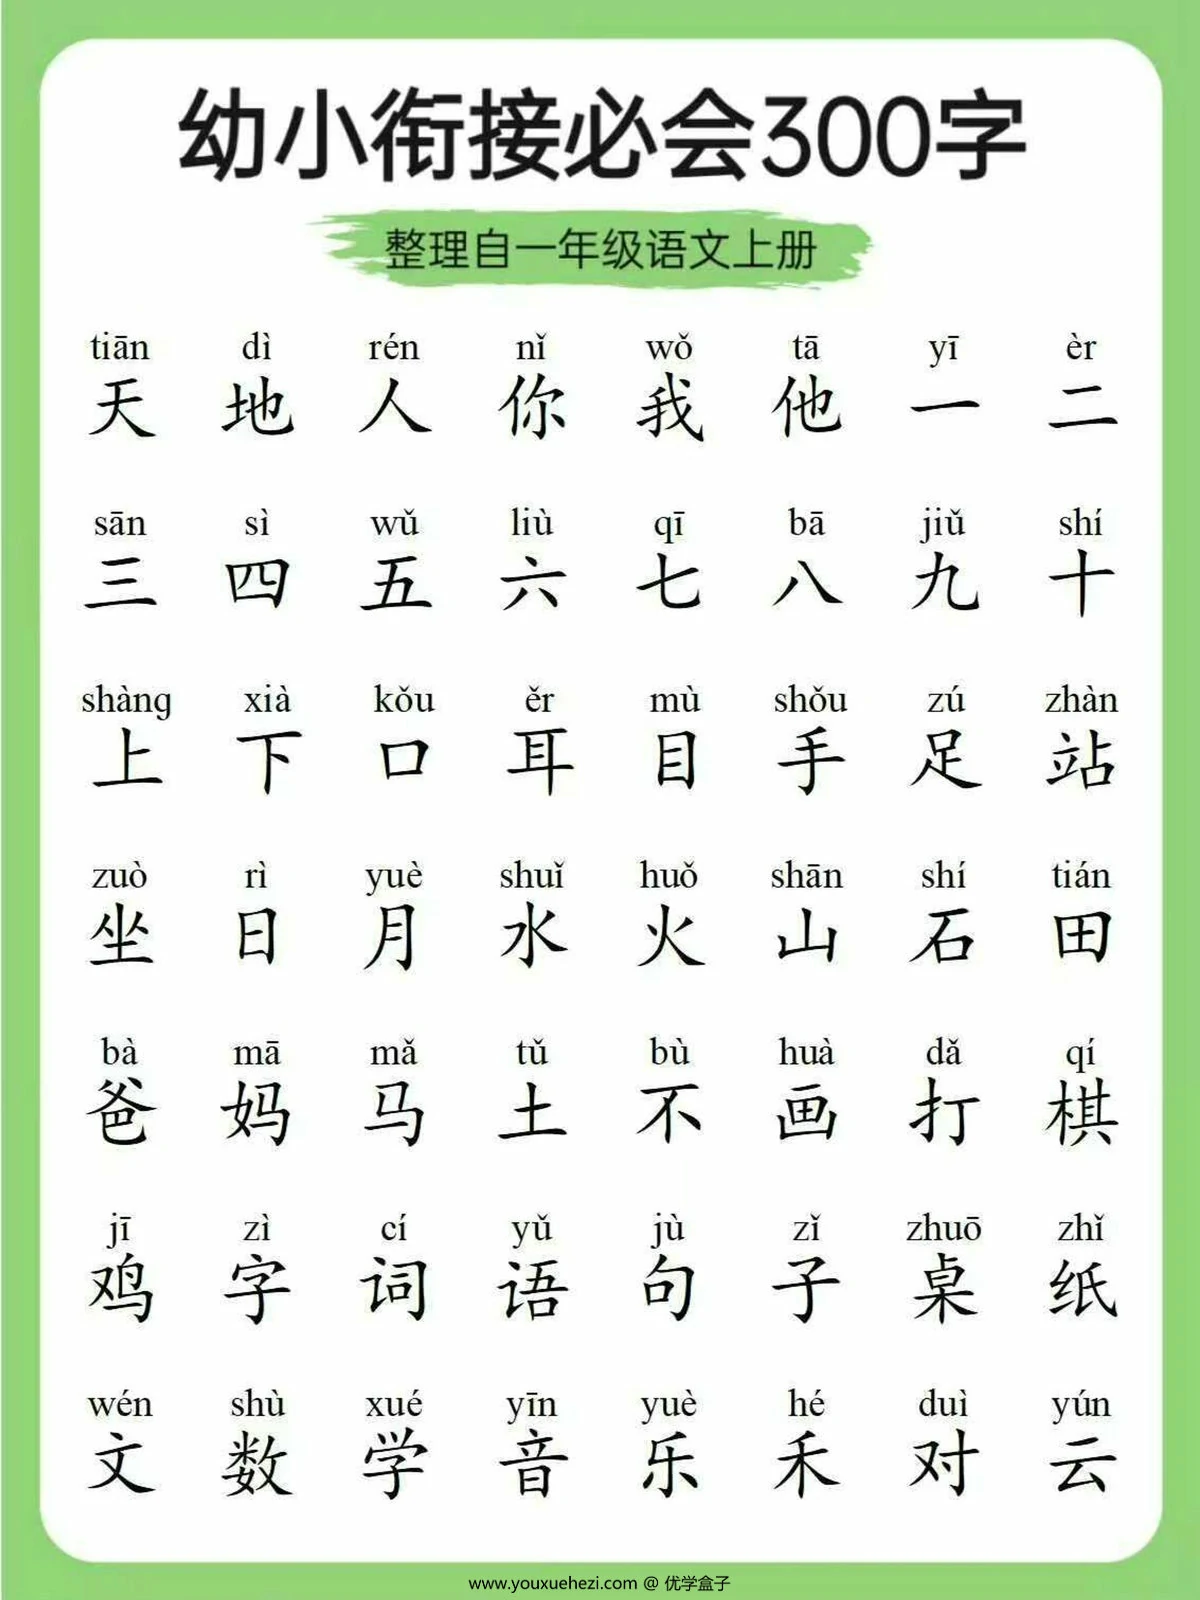 幼小衔接必会300字
整理自一年级语文上册
tiān dì rén nǐ wǒ tā yī èr
天 地 人 你 我 他 一 二
sān sì wǔ liù qī bā jiǔ shí
三 四 五 六 七 八 九 十
shàng xià kǒu ěr mù shǒu zú zhàn
上 下 口 耳 目 手 足 站
zuò rì yuè shuǐ huǒ shān shí tián
坐 日 月 水 火 山 石 田
bà mā mǎ tǔ bù huà dǎ qí
爸 妈 马 土 不 画 打 棋
jī zì cí yǔ jù zǐ zhuō zhǐ
鸡 字 词 语 句 子 桌 纸
wén shù xué yīn yuè hé duì yún
文 数 学 音 乐 禾 对 云
www.youxuehezi.com @ 优学盒子